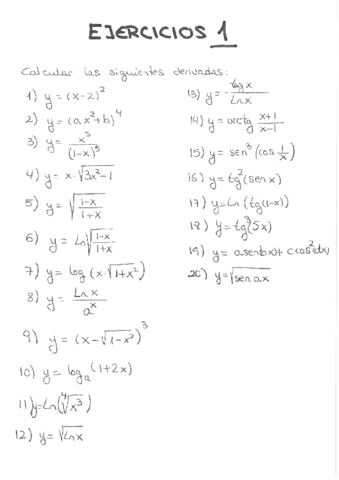 EJERCICIOS 1
Calcular las siguientes derivadas:
1) y = (x-2)²
2) y = (ax²+b)⁴
3) y = x⁵/(1-x)⁵
4) y = x·√(3x²-1)
5) y = √((1-x)/(1+x))
6) y = Ln√((1-x)/(1+x))
7) y = log(x·√(1+x²))
8) y = Lnx/aˣ
9) y = (x-√(1-x²))³
10) y = logₐ(1+2x)
11) y = Ln(⁴√x³)
12) y = √Lnx
13) y = log x/Lnx
14) y = arctg (x+1)/(x-1)
15) y = sen³(cos(1/x)
16) y = tg²(senx)
17) y = Ln(tg(1-x))
18) y = tg³(5x)
19) y = asen(bx)+ccos²(dx)
20) y = √senax